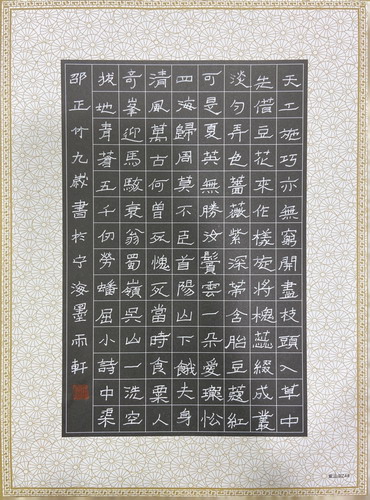 天工施巧亦無窮開盡枝頭入草中
先借豆花來作樣旋將穗蕊綴成叢
淡匀弄色薔薇紫深蒂含胎豆蔻紅
可是夏英無勝汝鬢雲一朵愛松
四海歸周莫不臣首陽山下餓夫身
清風萬古何曾死愧死當時食粟人
奇峯迎馬駭衰翁蜀嶺吳山一洗空
拔地青蒼五千仞勞蟠屈小詩中渠
邵正竹九歲書於宁海墨雨軒